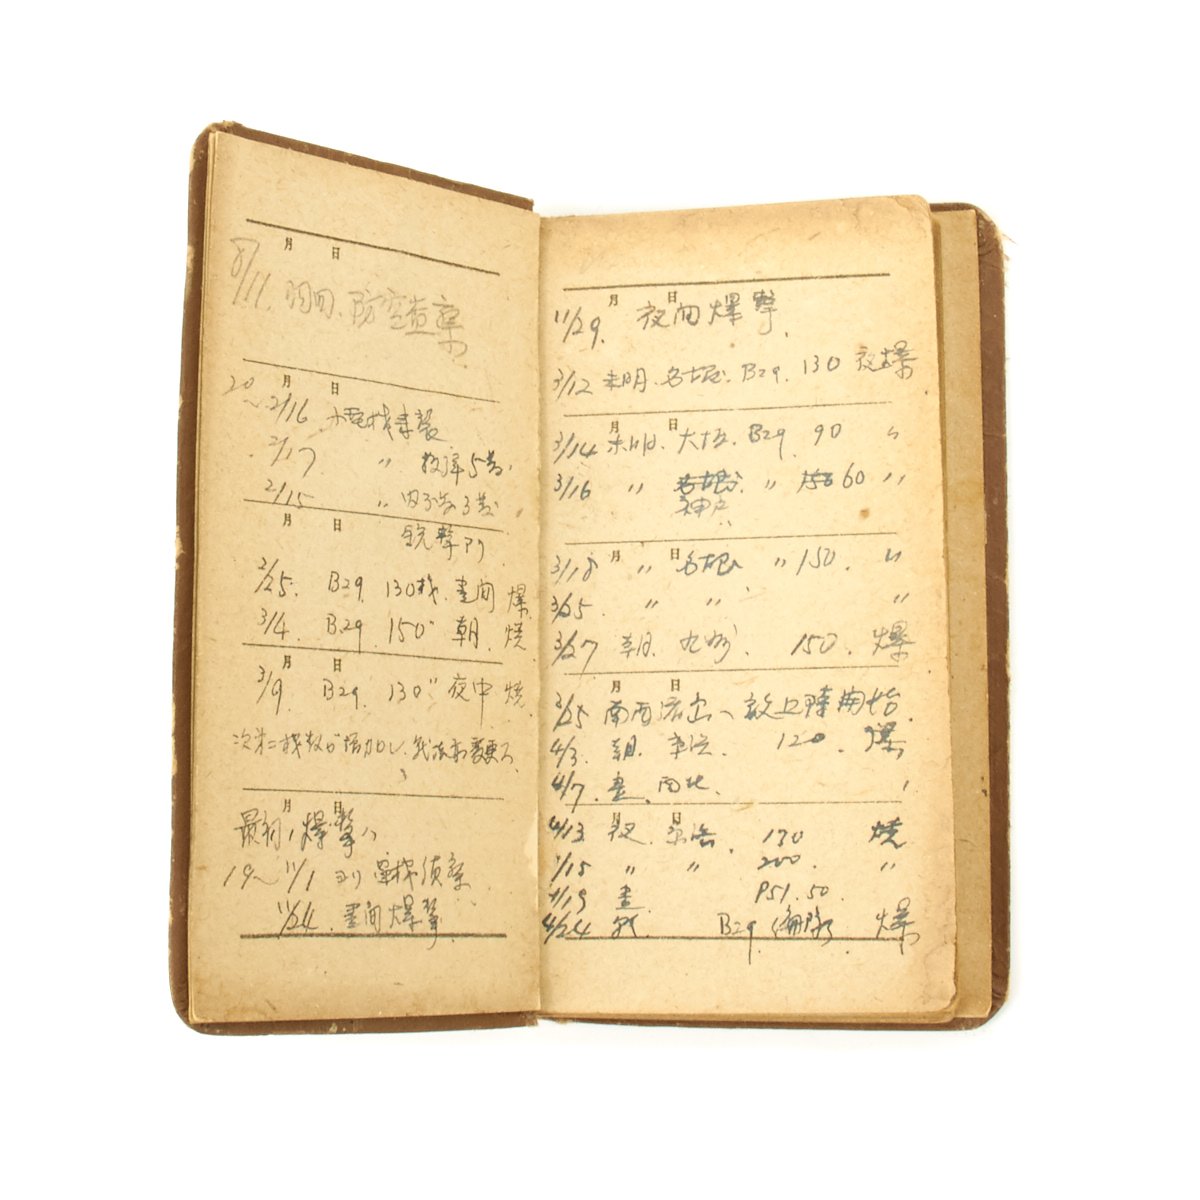 月 日
8/11. 羽田、防空
月 日
20~2/16 小型機来襲
2/17 〃
2/15 〃
月 日
銃撃アリ
2/25. B29. 130機. 昼間 爆
3/4. B29 150〃 朝. 焼
月 日
3/9. B29. 130〃 夜中 焼
次第ニ機数ガ増加シ、
月 日
最初ノ爆撃ハ
19~ 11/1 ヨリ 偵察
11/24. 昼間爆撃.
月 日
11/29. 夜間爆撃.
3/12 未明. 名古屋. B29. 130 夜爆
月 日
3/14 未明. 大阪. B29 90 〃
3/16 〃 名古屋. 〃 150 60 〃
神戸
月 日
3/18 〃 名古屋 〃 150. 〃
3/25. 〃 〃 〃
3/27 朝. 九州. 150. 爆
月 日
3/25 南西諸島ヘ敵上陸開始.
4/3. 朝. 京浜. 120. 爆
4/7. 昼.
月 日
4/13 夜. 京浜. 170 焼
4/15 〃 〃 200. 〃
4/19 昼. P51. 50.
4/24 朝. B29. 編隊 爆